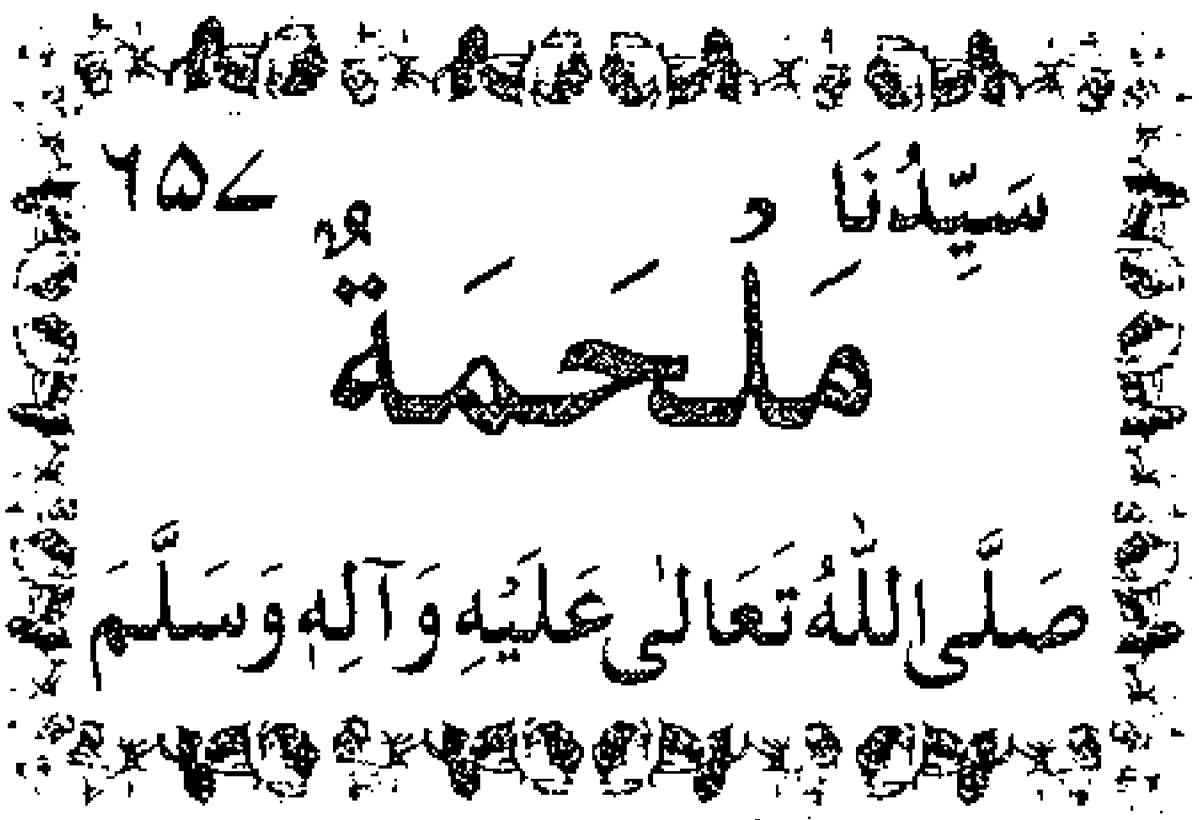 سَيِّدُنَا ۶۵۷
مَلْحَمَةٌ
صَلَّى اللّٰهُ تَعَالىٰ عَلَيْهِ وَآلِهٖ وَسَلَّمَ